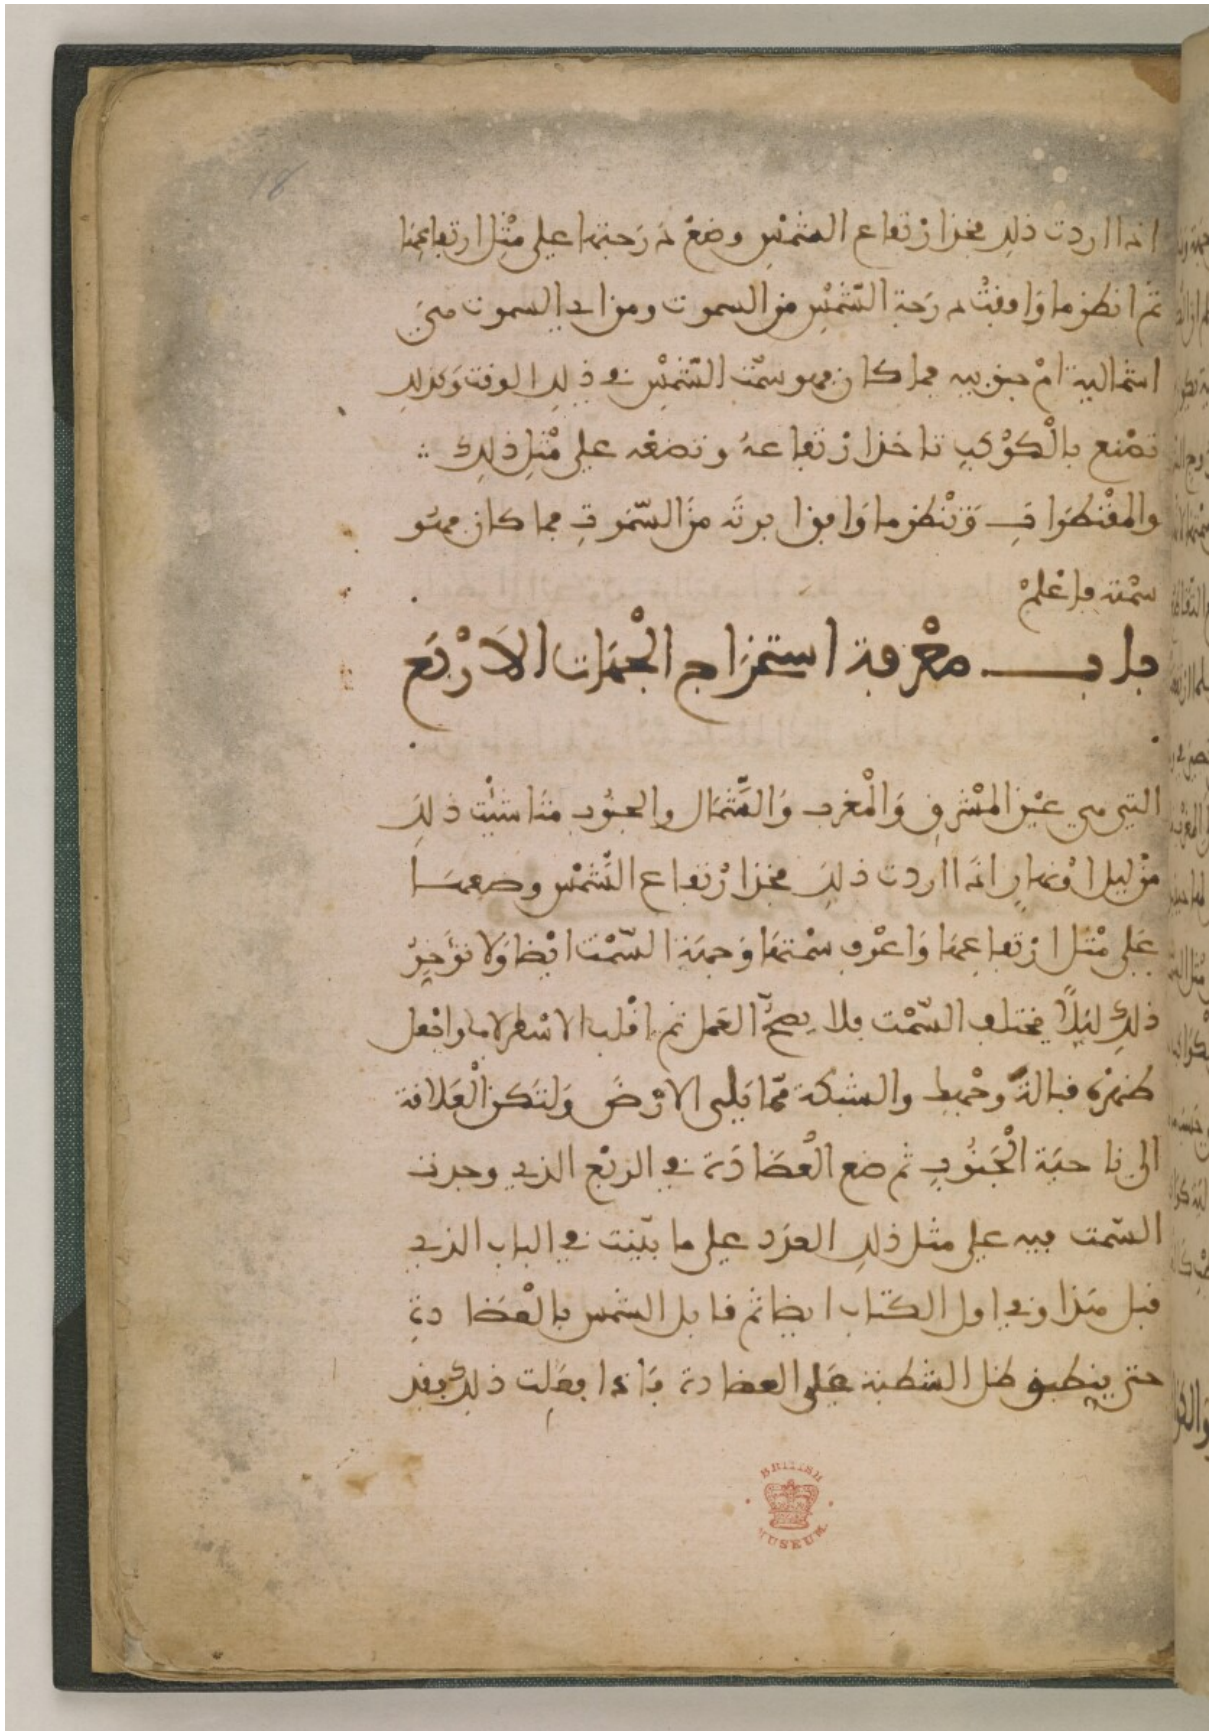 اذا اردت ذلك فخذ ارتفاع الشمس وضع درجتها على مثل ارتفاعها
ثم انظر ما وافقت درجة الشمس من السموت ومن اي السموت هي
اشمالية ام جنوبيه فما كان فهو سمت الشمس في ذلك الوقت وكذلك
تصنع بالكوكب تاخذ ارتفاعه وتضعه على مثل ذلك
والمقنطرات وتنظر ما وافق امن السموت فما كان فهو
سمته فاعلم
باب معرفة استخراج الجهات الاربع
التي هي عين المشرق والمغرب والشمال والجنوب متا شيت ذلك
من ليل او نهار اذا اردت ذلك فخذ ارتفاع الشمس وضعها
على مثل ارتفاعها واعرف سمتها وجهة السمت ايضا ولا تؤخر
ذلك ليلا يختلف السمت فلا يصح العمل ثم اقلب الاسطرلاب واجعل
ظهره قبالة وجهك والشبكة مما يلي الارض ولتكن العلاقة
الى ناحية الجنوب ثم ضع العضادة في الربع الذي وجدت
السمت فيه على مثل ذلك العدد على ما بينت في الباب الذي
قبل هذا وفي اول الكتاب ايضا ثم قابل الشمس بالعضادة
حتى ينطبق ظل الشظية على العضادة فاذا فعلت ذلك فقد
BRITISH
MUSEUM